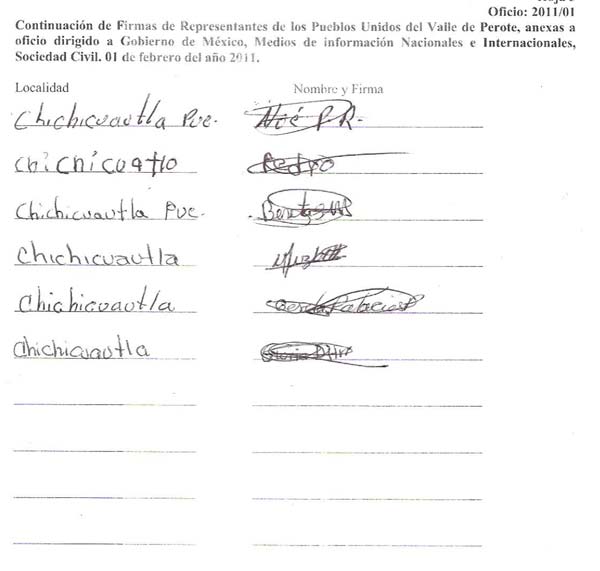 Oficio: 2011/01
Continuación de Firmas de Representantes de los Pueblos Unidos del Valle de Perote, anexas a
oficio dirigido a Gobierno de México, Medios de información Nacionales e Internacionales,
Sociedad Civil. 01 de febrero del año 2011.
Localidad Nombre y Firma
Chichicuautla Pue. Noé P.R.
Chichicuatlo Pedro
Chichicuautla Pue.
Chichicuautla
Chichicuautla
Chichicuautla